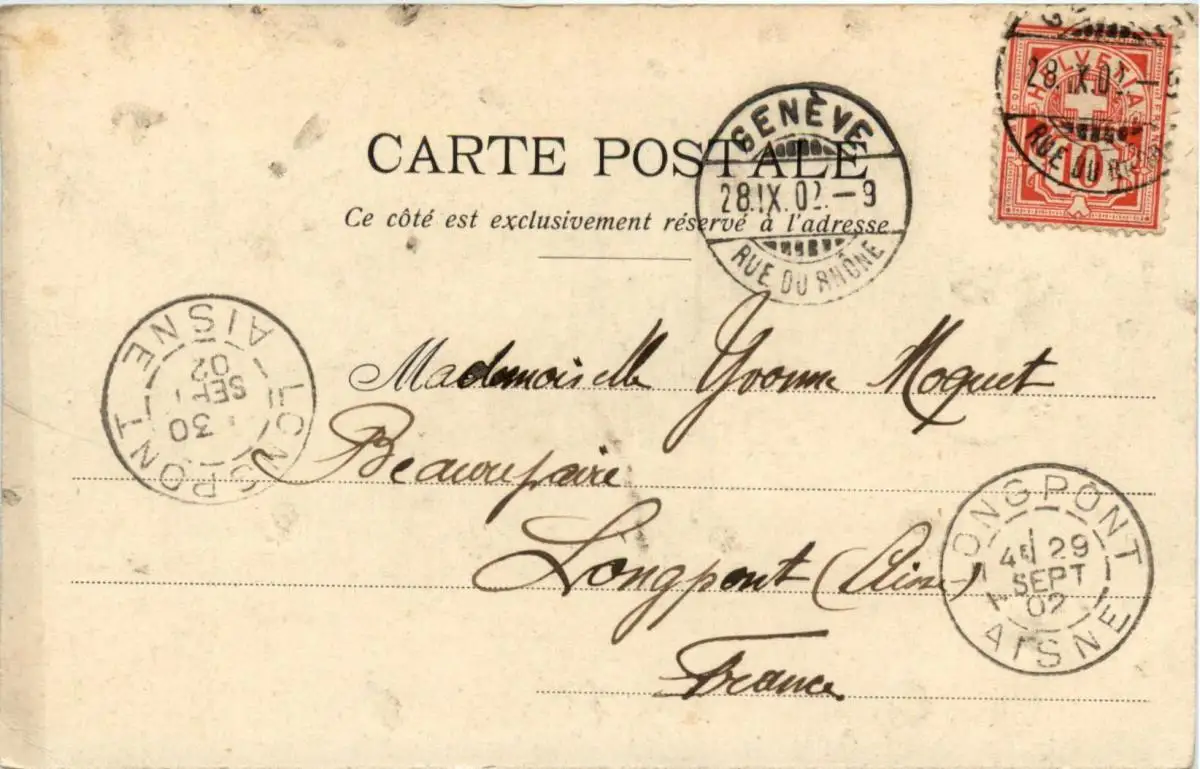 CARTE POSTALE
Ce côté est exclusivement réservé à l'adresse
GENÈVE
28.IX.02.—9
RUE DU RHÔNE
28.IX.02.—9
RUE DU RHÔNE
HELVETIA
10
Mademoiselle Yvonne Moquet
Beaurepaire
Longpont (Aisne)
France
LONGPONT
30
SEPT
02
AISNE
LONGPONT
29
SEPT
02
AISNE